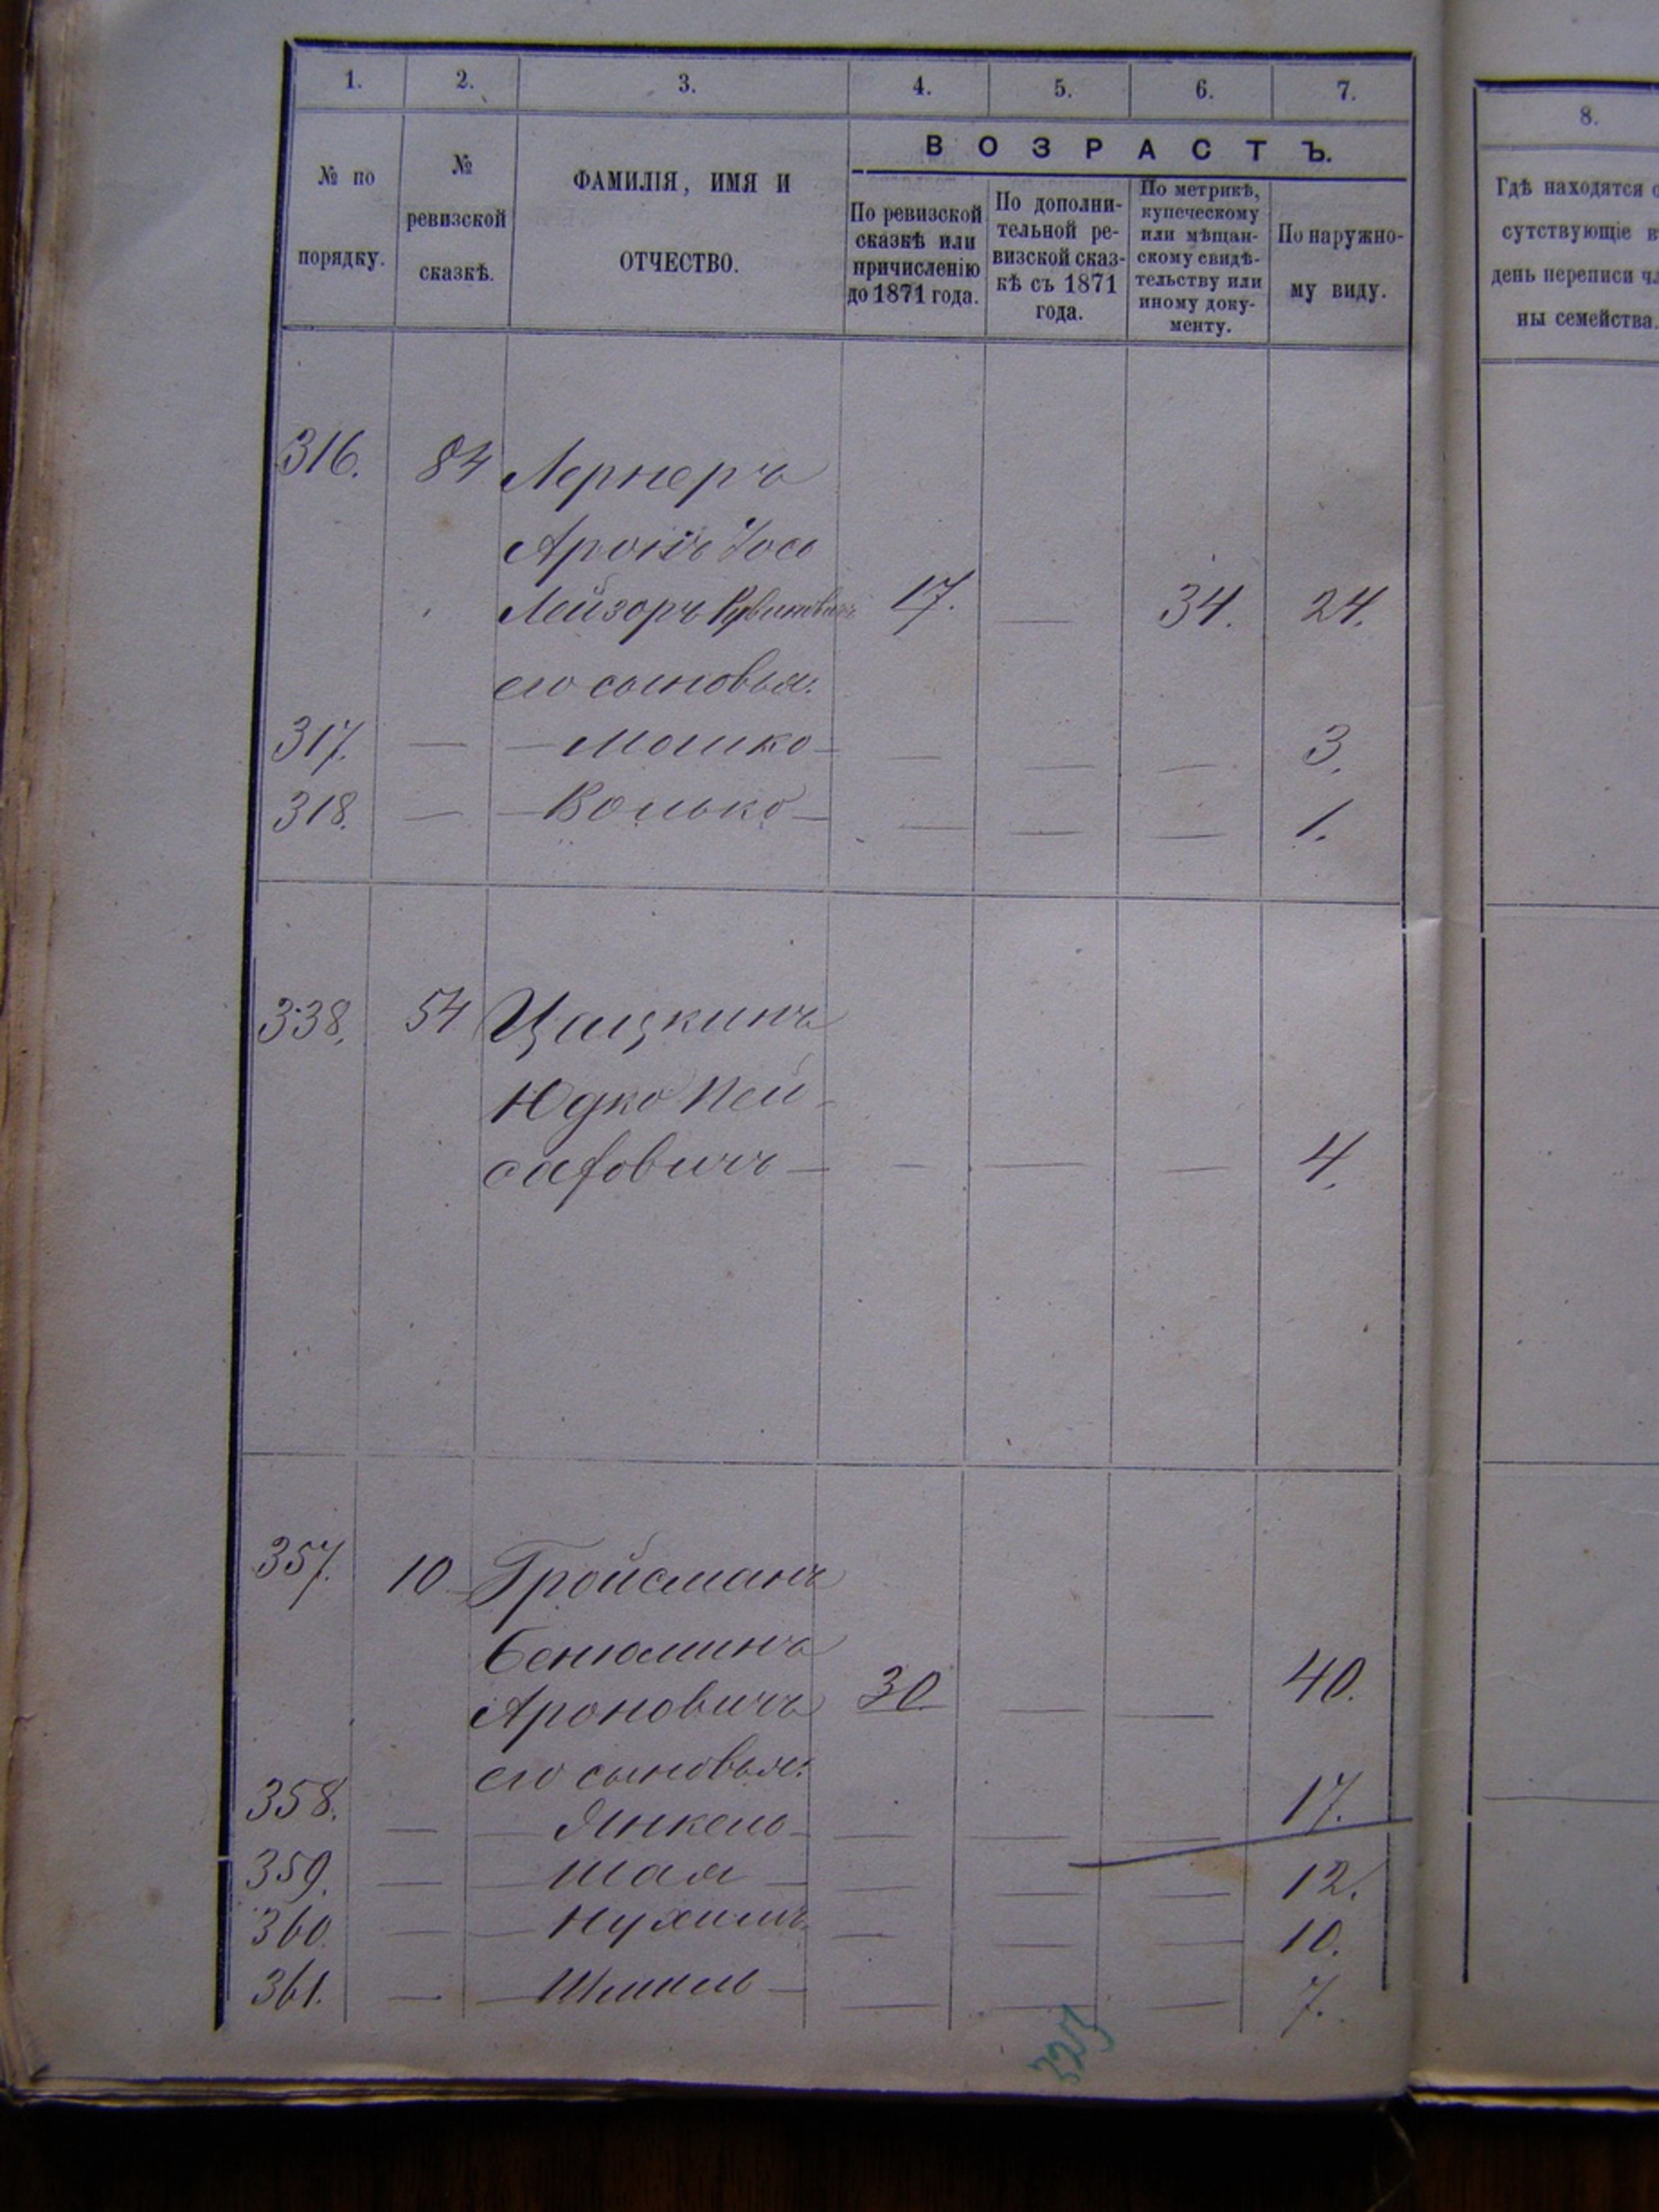 1. 2. 3. 4. 5. 6. 7.
№ по порядку.
№ ревизской сказкѣ.
ФАМИЛІЯ, ИМЯ И
ОТЧЕСТВО.
ВОЗРАСТЪ.
По ревизской
сказкѣ или
причисленію
до 1871 года.
По дополни-
тельной ре-
визской сказ-
кѣ съ 1871
года.
По метрикѣ,
купеческому
или мѣщан-
скому свидѣ-
тельству или
иному доку-
менту.
По наружно-
му виду.
8.
Гдѣ находятся
сутствующіе
день переписи
ны семейства.
316. 84 Лернеръ
Аронъ Іось
Лейзоръ Рувиновичъ 17. — 34. 24.
его сыновья:
317. — — Мошко — — — — 3.
318. — — Волько — — — — 1.
338. 54 Цацкинъ
Юдко Пей-
саховичъ — — — — 4.
357. 10 Гройсманъ
Бенюминъ
Ароновичъ 30 — — 40.
его сыновья:
358. — — Янкель — — — — 17.
359. — — Шая — — — — 12.
360. — — Нухимъ — — — 10.
361. — — Шмиль — — — — 7.
323